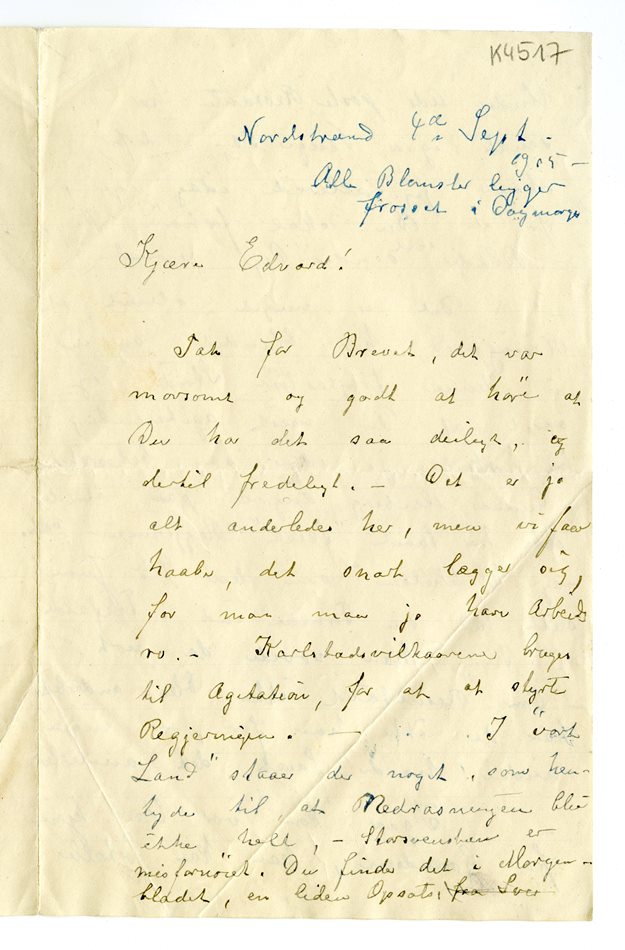 K4517
Nordstrand 4de Sept –
1905 –
Alle Blomster ligger
frosset i Dagmorges
Kjære Edvard!
Tak for Brevet, det var
morsomt og godt at høre at
Du har det saa deiligt, og
dertil fredeligt. – Det er jo
alt anderledes her, men vi faar
haabe, det snart lægger sig,
for man maa jo have Arbeids
ro. – Karlstadsvilkaarene bruges
til Agitation, for at at styrte
Regjeringen. – I "vort
Land" staaer der noget, som hen-
tyde til, at Nedrasningen blir
ikke helt, – Storsvensken er
misfornøiet. Du finder det i Morgen-
bladet, en liden Opsats, fra Sver